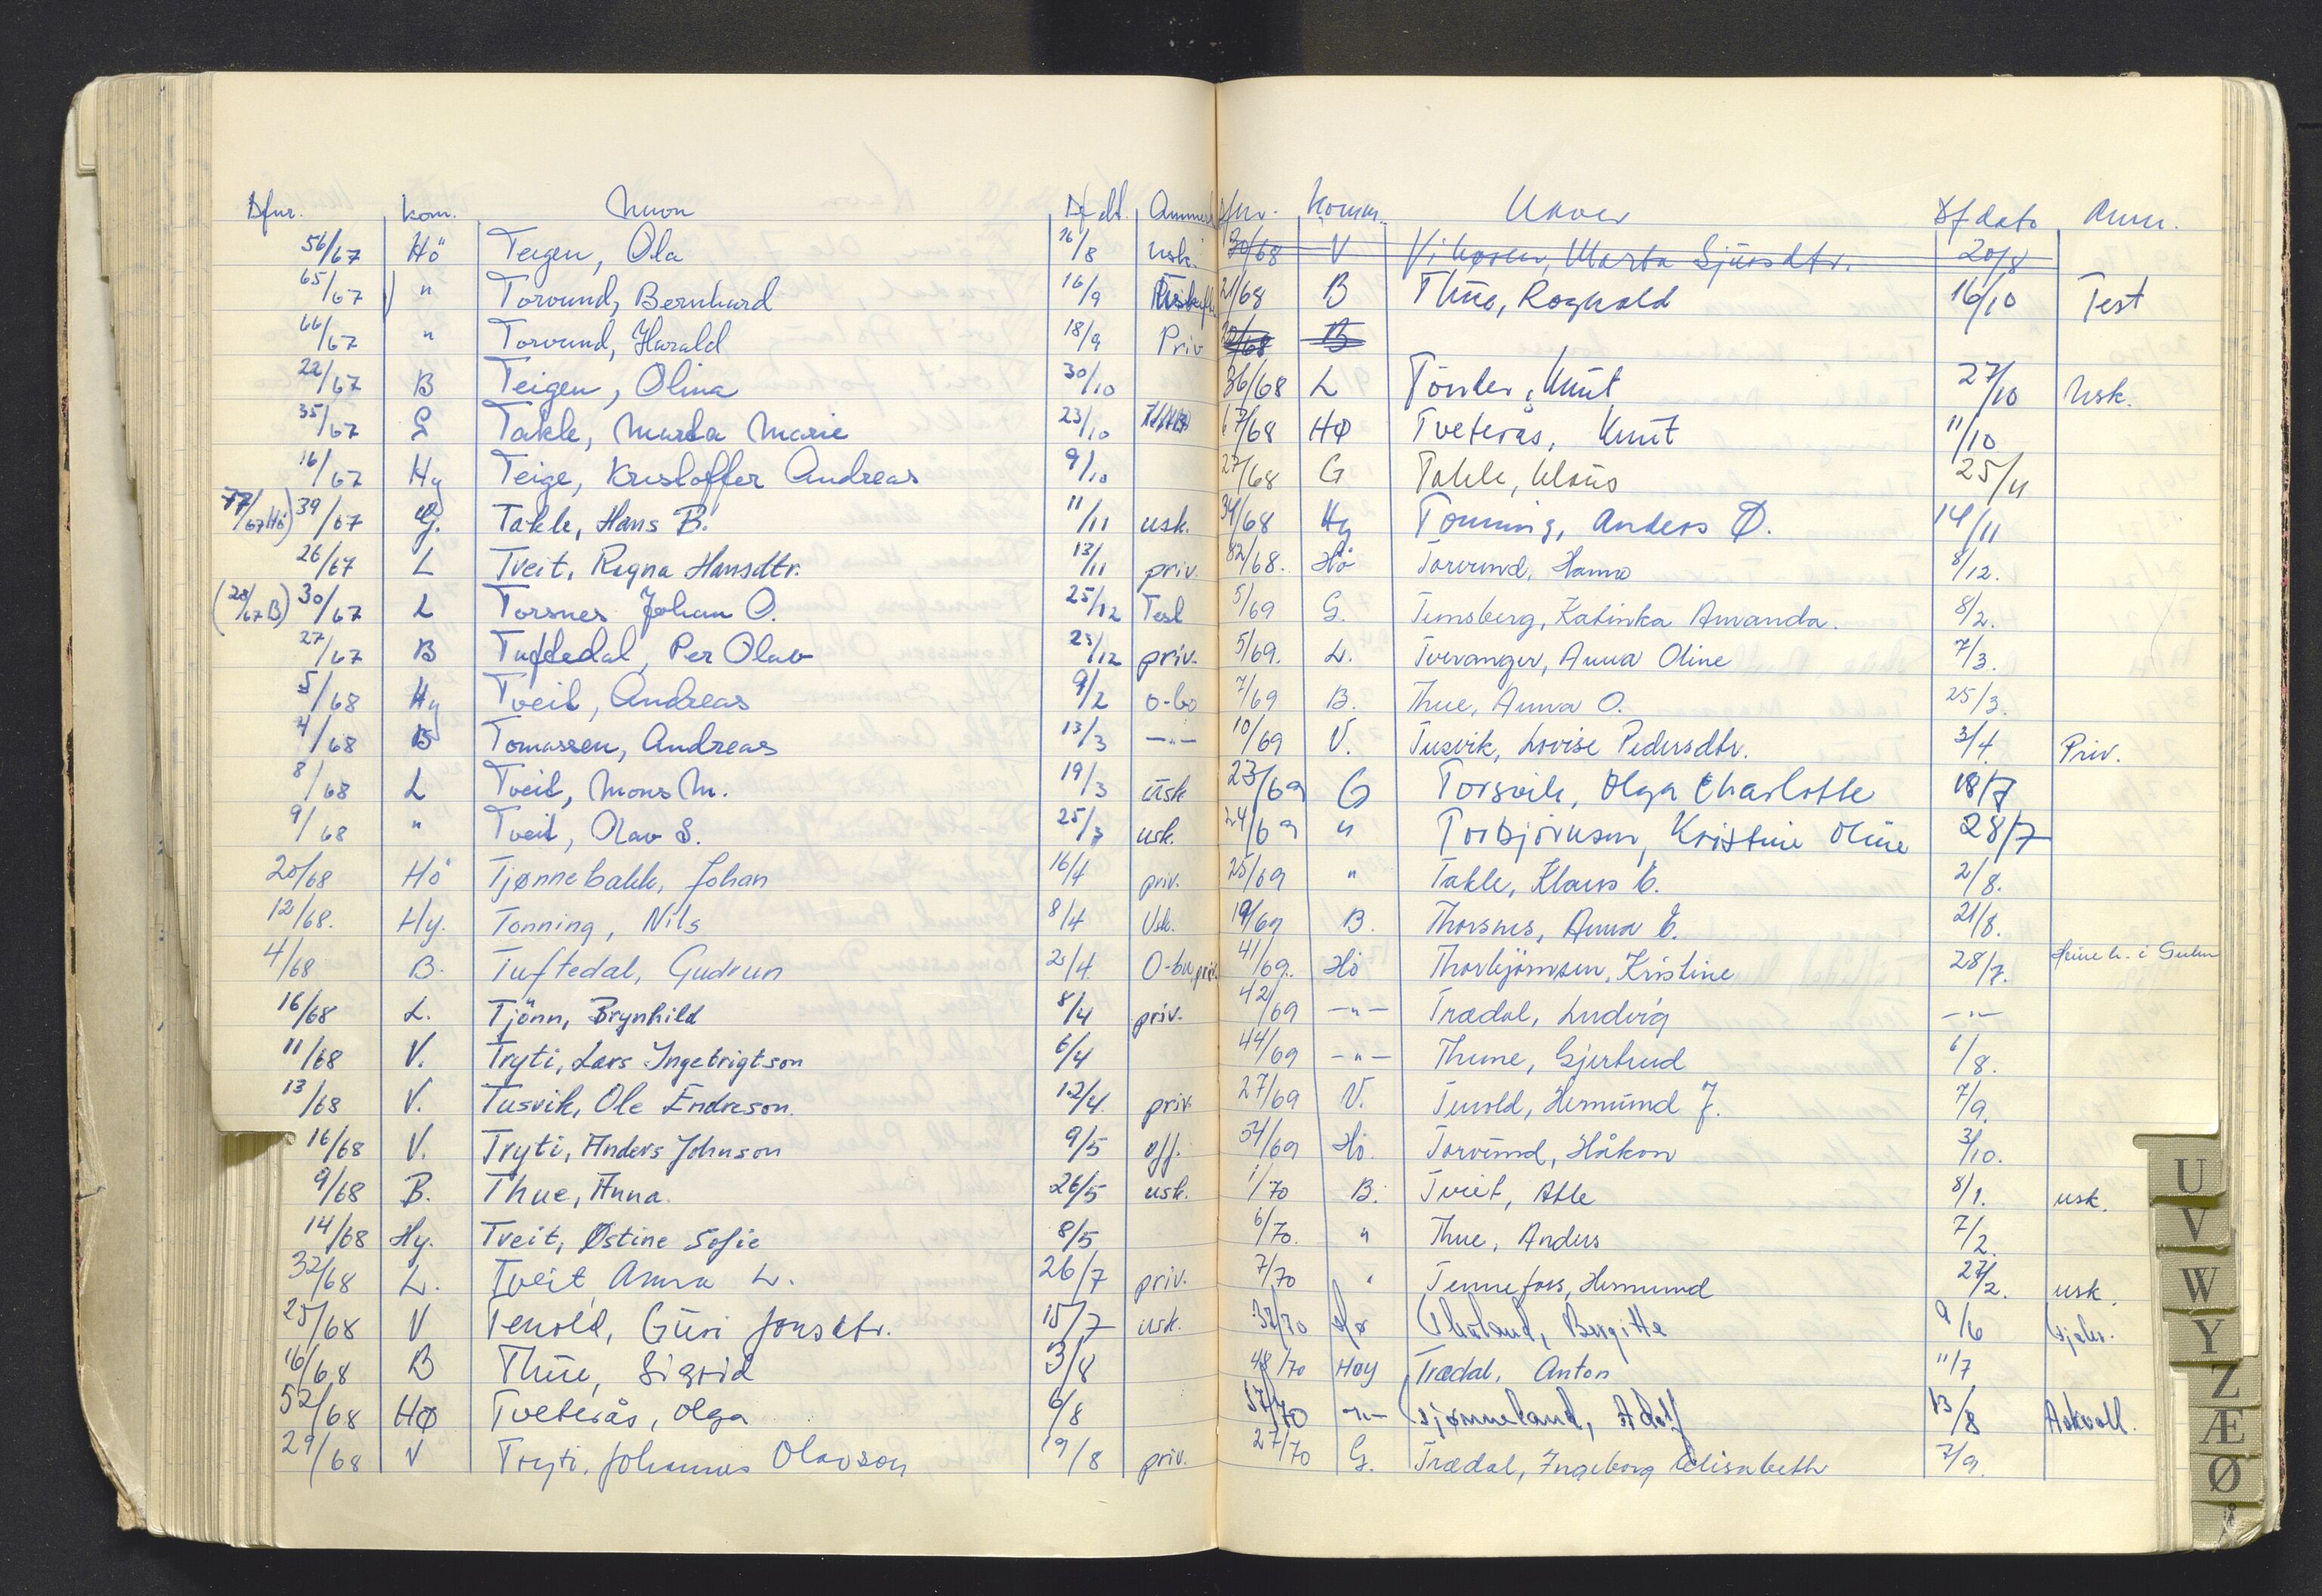 Dfnr. kom. Navn Df dt. Anmerk
56/67 Hö Teigen, Ola 16/8 Usk.
65/67 " Torvund, Bernhard 16/9
66/67 " Torvund, Harald 18/9 Priv
22/67 B Teigen, Olina 30/10
35/67 G Takle, Marta Marie 23/10
16/67 Hy Teige, Kristoffer Andreas 9/10
77/67 Hö) 39/67 G. Takle, Hans B. 11/11 usk.
26/67 L Tveit, Ragna Hansdtr. 13/11 priv.
(28/67 B) 30/67 L Torsnes Johan O. 25/12 Test
27/67 B Tuftedal, Per Olav 23/12 priv.
5/68 Hy Tveit, Andreas 9/2 o-bo
4/68 B Tomassen, Andreas 13/3 -"-
8/68 L Tveit, Mons M. 19/3 usk
9/68 " Tveit, Olav S. 25/3 usk.
20/68 Hö Tjønnebakk, Johan 16/4 priv.
12/68. Hy. Tonning, Nils 8/4 Usk.
4/68 B. Tuftedal, Gudrun 2/4 O-bu, priv.
16/68 L. Tjönn, Brynhild 8/4 priv.
11/68 V. Tryti, Lars Ingebrigtson 6/4
13/68 V. Tusvik, Ole Endreson. 12/4. priv.
16/68 V. Tryti, Anders Johnson 9/5 off.
9/68 B. Thue, Anna. 26/5 usk.
14/68 Hy. Tveit, Østine Sofie 8/5
32/68 L. Tveit Anna L. 26/7 priv.
25/68 V Tenold, Guri Jonsdtr. 15/7 usk.
16/68 B Thue, Sigrid 3/8
52/68 HØ Tveterås, Olga 6/8
29/68 V Tryti, Johannes Olavson 19/8 priv.
Dfnr. Komm. Navn Df dato Anm.
30/68 V Vikøren, Marta Sjursdtr. 20/8
21/68 B Thue, Ragnvald 16/10 Test
22/68 B
36/68 L Tönder, Knut 27/10 Usk.
67/68 HØ Tveterås, Knut 11/10
27/68 G Takle, Klaus 25/11
34/68 Hy Tonning, Anders Ø. 14/11
82/68. Hö Torvund, Hanna 8/12.
5/69 G. Tunsberg, Katinka Amanda. 8/2.
5/69. L. Torvanger, Anna Oline 7/3.
7/69 B. Thue, Anna O. 25/3.
10/69 V. Tusvik, Lovise Pedersdtr. 3/4. Priv.
23/69 G Torsvik, Olga Charlotte 18/7
24/69 " Torbjörnsen, Kristine Oline 28/7
25/69 " Takle, Klaus E. 2/8.
19/69 B. Thorsnes, Anna E. 21/8.
41/69. Hö Thorbjörnsen, Kristine 28/7. i Gulen
42/69 -"- Trædal, Ludvig -"-
44/69 -"- Thune, Gjertrud 6/8.
27/69 V. Tenold, Hermund J. 7/9.
54/69 Hö. Torvund, Håkon 3/10.
1/70 B. Tveit, Atle 8/1. usk.
6/70. " Thue, Anders 7/2.
7/70 " Tennefoss, Hermund 27/2. usk.
37/70 Hø Bergitte 9/6
48/70 Høy Trædal, Anton 11/7
57/70 -"- Tjønneland, Adolf 13/8 Askvoll.
27/70 G. Trædal, Ingeborg Elisabeth 7/9.
U
V
W
Y
Z
Æ
Ø
Å